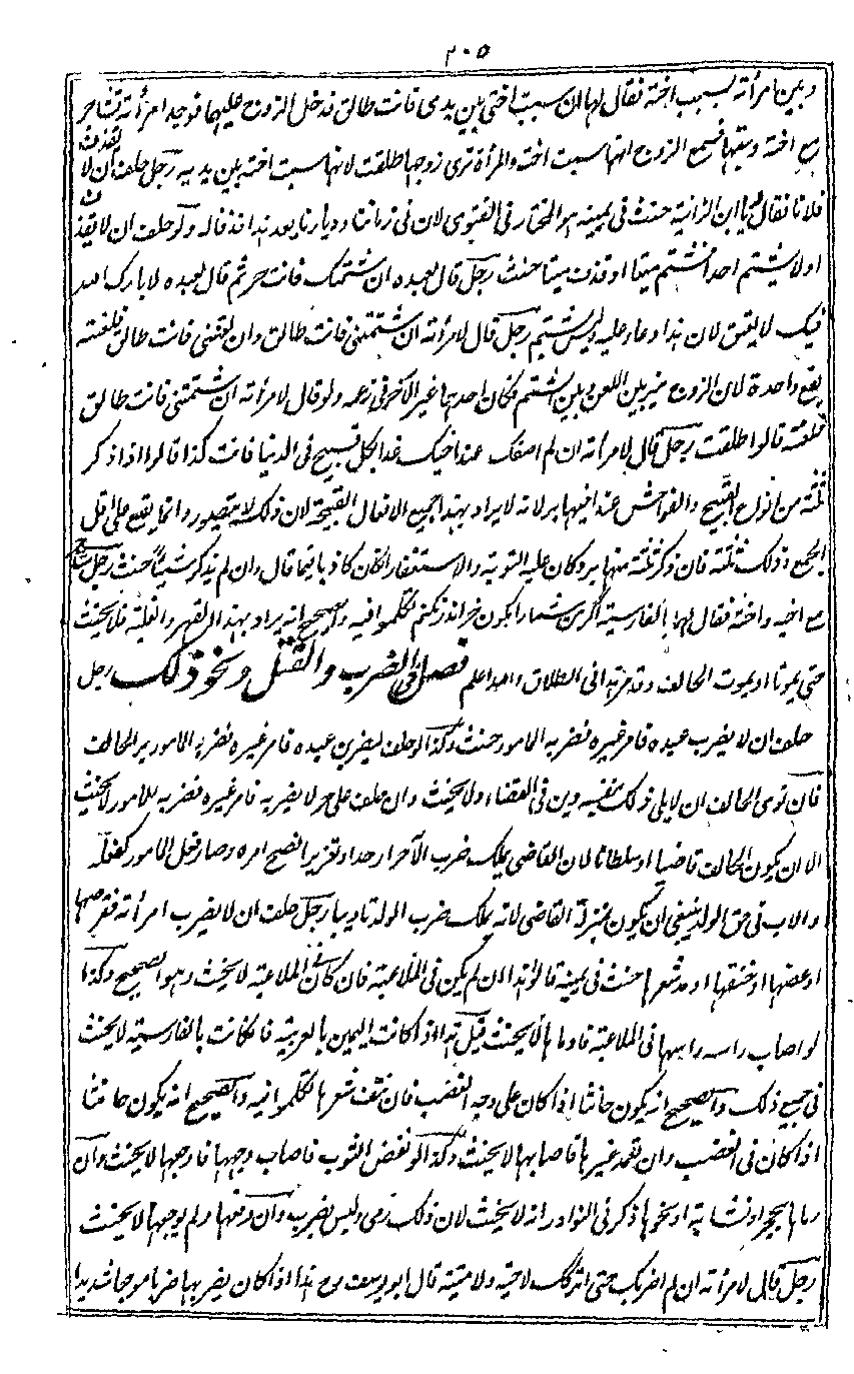 ٢٠٥
وبين امرأته بسبب اخته فقال لها ان سببت اختي بين يدي فانت طالق فدخل الزوج عليها فوجد امرأته تشاجر
مع اخته وسبتها فسمع الزوج انها سبت اخته والمرأة ترى زوجها طلقت لانها سبت اخته بين يديه رجل حلف ان لا يقذف
فلانا فقال له يا ابن الزانية حنث في يمينه هو المختار في الفتوى لان في زماننا وديارنا يعد هذا قذفا له ولو حلف ان لا يقذف
او لا يشتم احدا فشتم ميتا او قذف ميتا حنث رجل قال لعبده ان شتمتك فانت حر ثم قال لعبده لا بارك الله
فيك لا يعتق لان هذا دعاء عليه وليس بشتم رجل قال لامرأته ان شتمتني فانت طالق وان لعنتني فانت طالق فلعنته
يقع واحدة لان الزوج ميز بين اللعن وبين الشتم فكان احدهما غير الآخر في زعمه ولو قال لامرأته ان شتمتني فانت طالق
فلعنته قالوا طلقت رجل قال لامرأته ان لم اصفك عند اخيك غدا بكل قبيح في الدنيا فانت كذا قالوا اذا ذكر
ثلثة من انواع القبيح والفواحش عند اخيها بر لانه لا يراد بهذا جميع الافعال القبيحة لان ذلك لا يتصور وانما يقع على اقل
الجمع وذلك ثلثة فان ذكر ثلثة منها بر وكان عليه التوبة والاستغفار ان كان كاذبا فيما قال وان لم يذكر شيئا حنث رجل
مع اخيه واخته فقال لهما بالفارسية اكر من شما را بكون خر اندر نكنم تكلموا فيه والصحيح انه يراد بهذا القهر والغلبة فلا يحنث
حتى يموتا او يموت الحالف وقد مر هذا في الطلاق والله اعلم فصل في الضرب والقتل ونحو ذلك رجل
حلف ان لا يضرب عبده فامر غيره فضربه المامور حنث وكذا لو حلف ليضربن عبده فامر غيره فضربه المامور بر الحالف
فان نوى الحالف ان لا يلي ذلك بنفسه دين في القضاء ولا يحنث وان حلف على حر لا يضربه فامر غيره فضربه المامور لا يحنث
الا ان يكون الحالف قاضيا او سلطانا لان القاضي يملك ضرب الاحرار حدا وتعزيرا فصح امره وصار فعل المامور كفعله
والاب في حق الولد ينبغي ان يكون بمنزلة القاضي لانه يملك ضرب الولد تاديبا رجل حلف ان لا يضرب امرأته فقرصها
او عضها او خنقها او مد شعرها حنث في يمينه قالوا هذا ان لم يكن في الملاعبة فان كان في الملاعبة لا يحنث وهو الصحيح وكذا
لو اصاب راسه راسها في الملاعبة فادماها لا يحنث قيل هذا اذا كانت اليمين بالعربية فان كانت بالفارسية لا يحنث
في جميع ذلك والصحيح انه يكون حانثا اذا كان على وجه الغضب فان نتف شعرها تكلموا فيه والصحيح انه يكون حانثا
اذا كان في الغضب وان تعمد غيرها فاصابها لا يحنث وكذا لو نفض الثوب فاصاب وجهها فاوجعها لا يحنث وان
رماها بحجر او نشابة او نحوها ذكر في النوادر انه لا يحنث لان ذلك رمي وليس بضرب وان دفعها ولم يوجعها لا يحنث
رجل قال لامرأته ان لم اضربك حتى اتركك لا حية ولا ميتة قال ابو يوسف رح هذا اذا كان يضربها ضربا موجعا شديدا